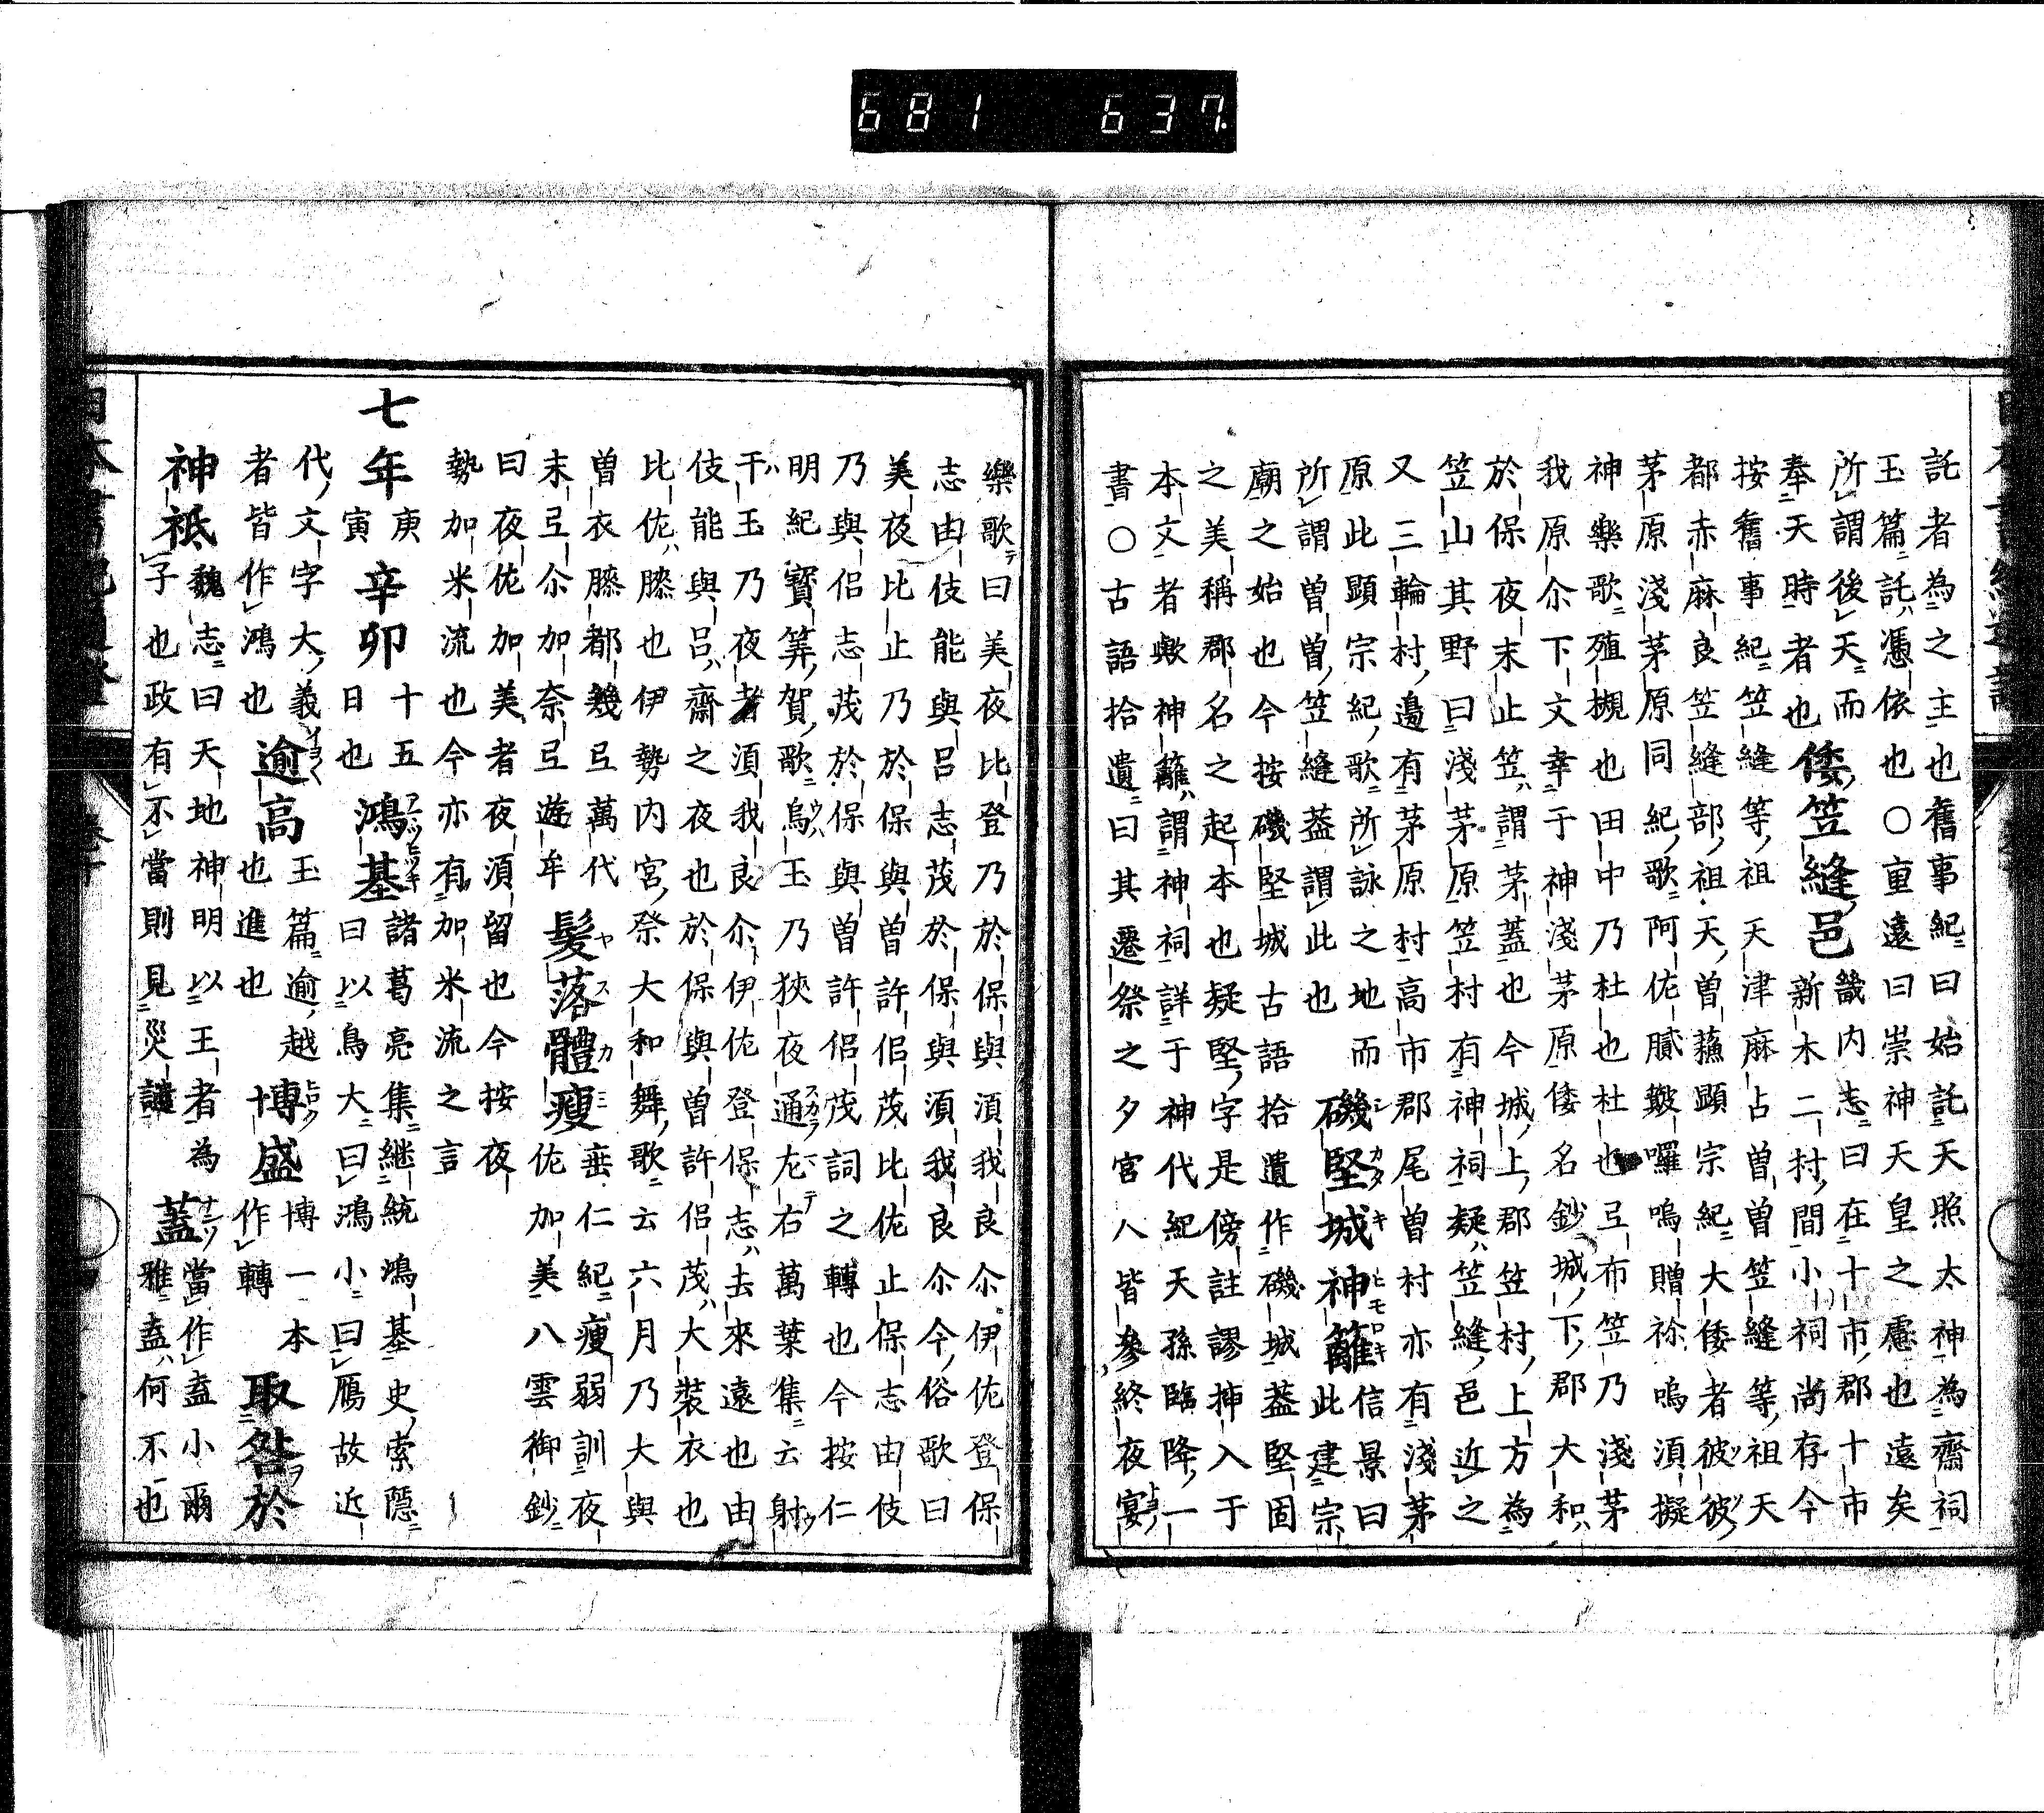 681 637.
託者為之主也舊事紀曰始託天照太神為齋祠
玉篇託憑依也○重遠曰崇神天皇之慮也遠矣
所謂後天而
奉天時者也
倭笠縫邑
畿内志曰在十市郡十市
新木二村間小祠尚存今
按舊事紀笠縫等祖天津麻占曽曽笠縫等祖天
都赤麻良笠縫部祖天曽蘓顯宗紀大倭者彼彼
茅原淺茅原同紀歌阿佐膩皺囉嗚贈祢嗚湏擬
神樂歌殖槻也田中乃杜也杜也弖布笠乃淺茅
我原尒下文幸于神淺茅原倭名鈔城下郡大和
於保夜末止笠謂茅蓋也今城上郡笠村上方為
笠山其野曰淺茅原笠村有神祠疑笠縫邑近之
又三輪村邊有茅原村高市郡尾曽村亦有淺茅
原此顯宗紀歌所詠之地而
所謂曽曽笠縫蓋謂此也
磯堅城神籬
信景曰
此建宗
廟之始也今按磯堅城古語拾遺作磯城蓋堅固
之美稱郡名之起本也疑堅字是傍註謬挿入于
本文者歟神籬謂神祠詳于神代紀天孫臨降一
書○古語拾遺曰其遷祭之夕宮人皆參終夜宴
樂歌曰美夜比登乃於保與湏我良尒伊佐登保
志由伎能與呂志茂於保與湏我良尒今俗歌曰
美夜比止乃於保與曽許侶茂比佐止保志由伎
乃與侶志茂於保與曽許侶茂詞之轉也今按仁
明紀寳筭賀歌烏玉乃狹夜通左右萬葉集云射
干玉乃夜者湏我良尒伊佐登保志去來遠也由
伎能與呂齋之夜也於保與曽許侶茂大裝衣也
比佐膝也伊勢内宮祭大和舞歌云六月乃大與
曽衣膝都幾弖萬代
末弖尒加奈弖遊牟
髮落體瘦
垂仁紀痩弱訓夜
佐加美八雲御鈔
曰夜佐加美者夜湏留也今按夜
勢加米流也今亦有加米流之言
七年
庚
寅
辛卯
十五
日也
鴻基
諸葛亮集継統鴻基史索隱
曰以鳥大曰鴻小曰鴈故近
代文字大義
者皆作鴻也
逾高
玉篇逾越
也進也
博盛
博一本
作轉
取咎於
神祇
魏志曰天地神明以王者為
子也政有不當則見災譴
蓋
當作盍小爾
雅盍何不也